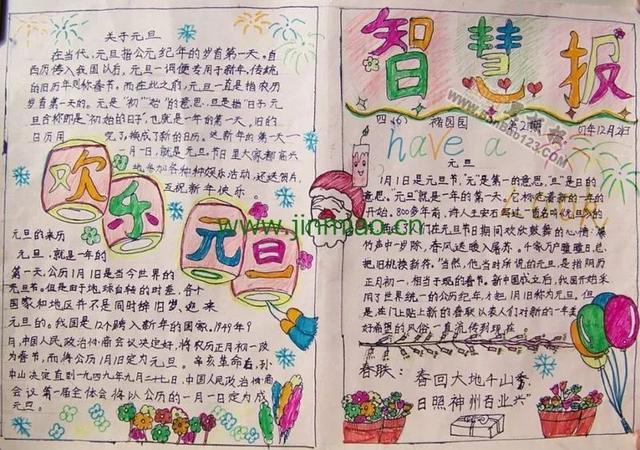 关于元旦
在当代,元旦指公元纪年的岁首第一天。自
西历传入我国以后,元旦一词便专用于新年,传统
的旧历年则称春节。而在此之前,元旦一直是指农历
岁首第一天的。元是"初""始"的意思,旦是指"日子"元
旦合称即是"初始的日子",也就是一年的第一天,旧的
日历用完了换成了新的日历。这新年的第一天一
一月一日,就是元旦,节日里大家都高兴
地参加各种娱乐活动,还送贺片,
互祝新年快乐。
欢乐元旦
元旦的来历
元旦,就是一年的
第一天,公历1月1日是当今世界的
元旦节。但是由于地球自转的时差,各个
国家和地区并不是同时辞旧岁、迎来
元旦的。我国是12个跨入新年的国家,1949年9
月,中国人民政治协商会议决定好,将农历正月初一改
为春节,而将公历1月1日定为元旦。辛亥革命后,孙
中山决定直到一九四九年九月二十七日,中国人民政治协商
会议第一届全体会将以公历的一月一日定为成
元旦。
智慧报
四(6) 楷园园 第2期 07年12月28日
have a
元旦
1月1日是元旦节,"元"是第一的意思,"旦"是"日"的
意思。"元旦"就是一年的第一天。它标志着新的一年的
开始。800多年前,诗人王安石
在元旦节日期间欢欣鼓舞的心情:爆
竹声中一岁除,春风送暖入屠苏。千家万户瞳瞳日,总
把旧桃换新符。"当然,他当时所说的元旦,是指阴历
正月初一,相当于现的春节。新中国成立后,我国开始采
用了世界统一的公历纪年,才把1月1日称为元旦,但
是,在门上贴上新的春联以表人们对新的一年美
好希望的风俗一直流传到现在
春联:春回大地千山秀,
日照神州百业兴"
www.jinmiao.cn